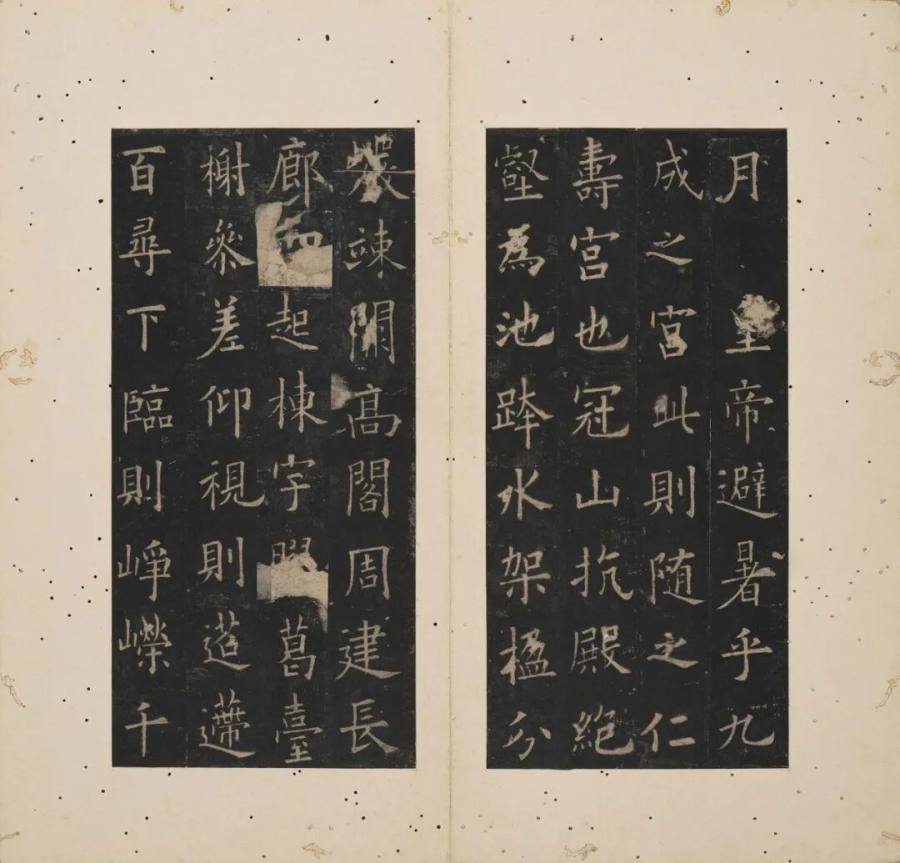 月 皇帝避暑乎九
成之宮此則随之仁
壽宮也冠山抗殿絶
壑為池跨水架楹分
巖竦闕高閣周建長
廊四起棟宇膠葛臺
榭參差仰視則迢遰
百尋下臨則崢嶸千